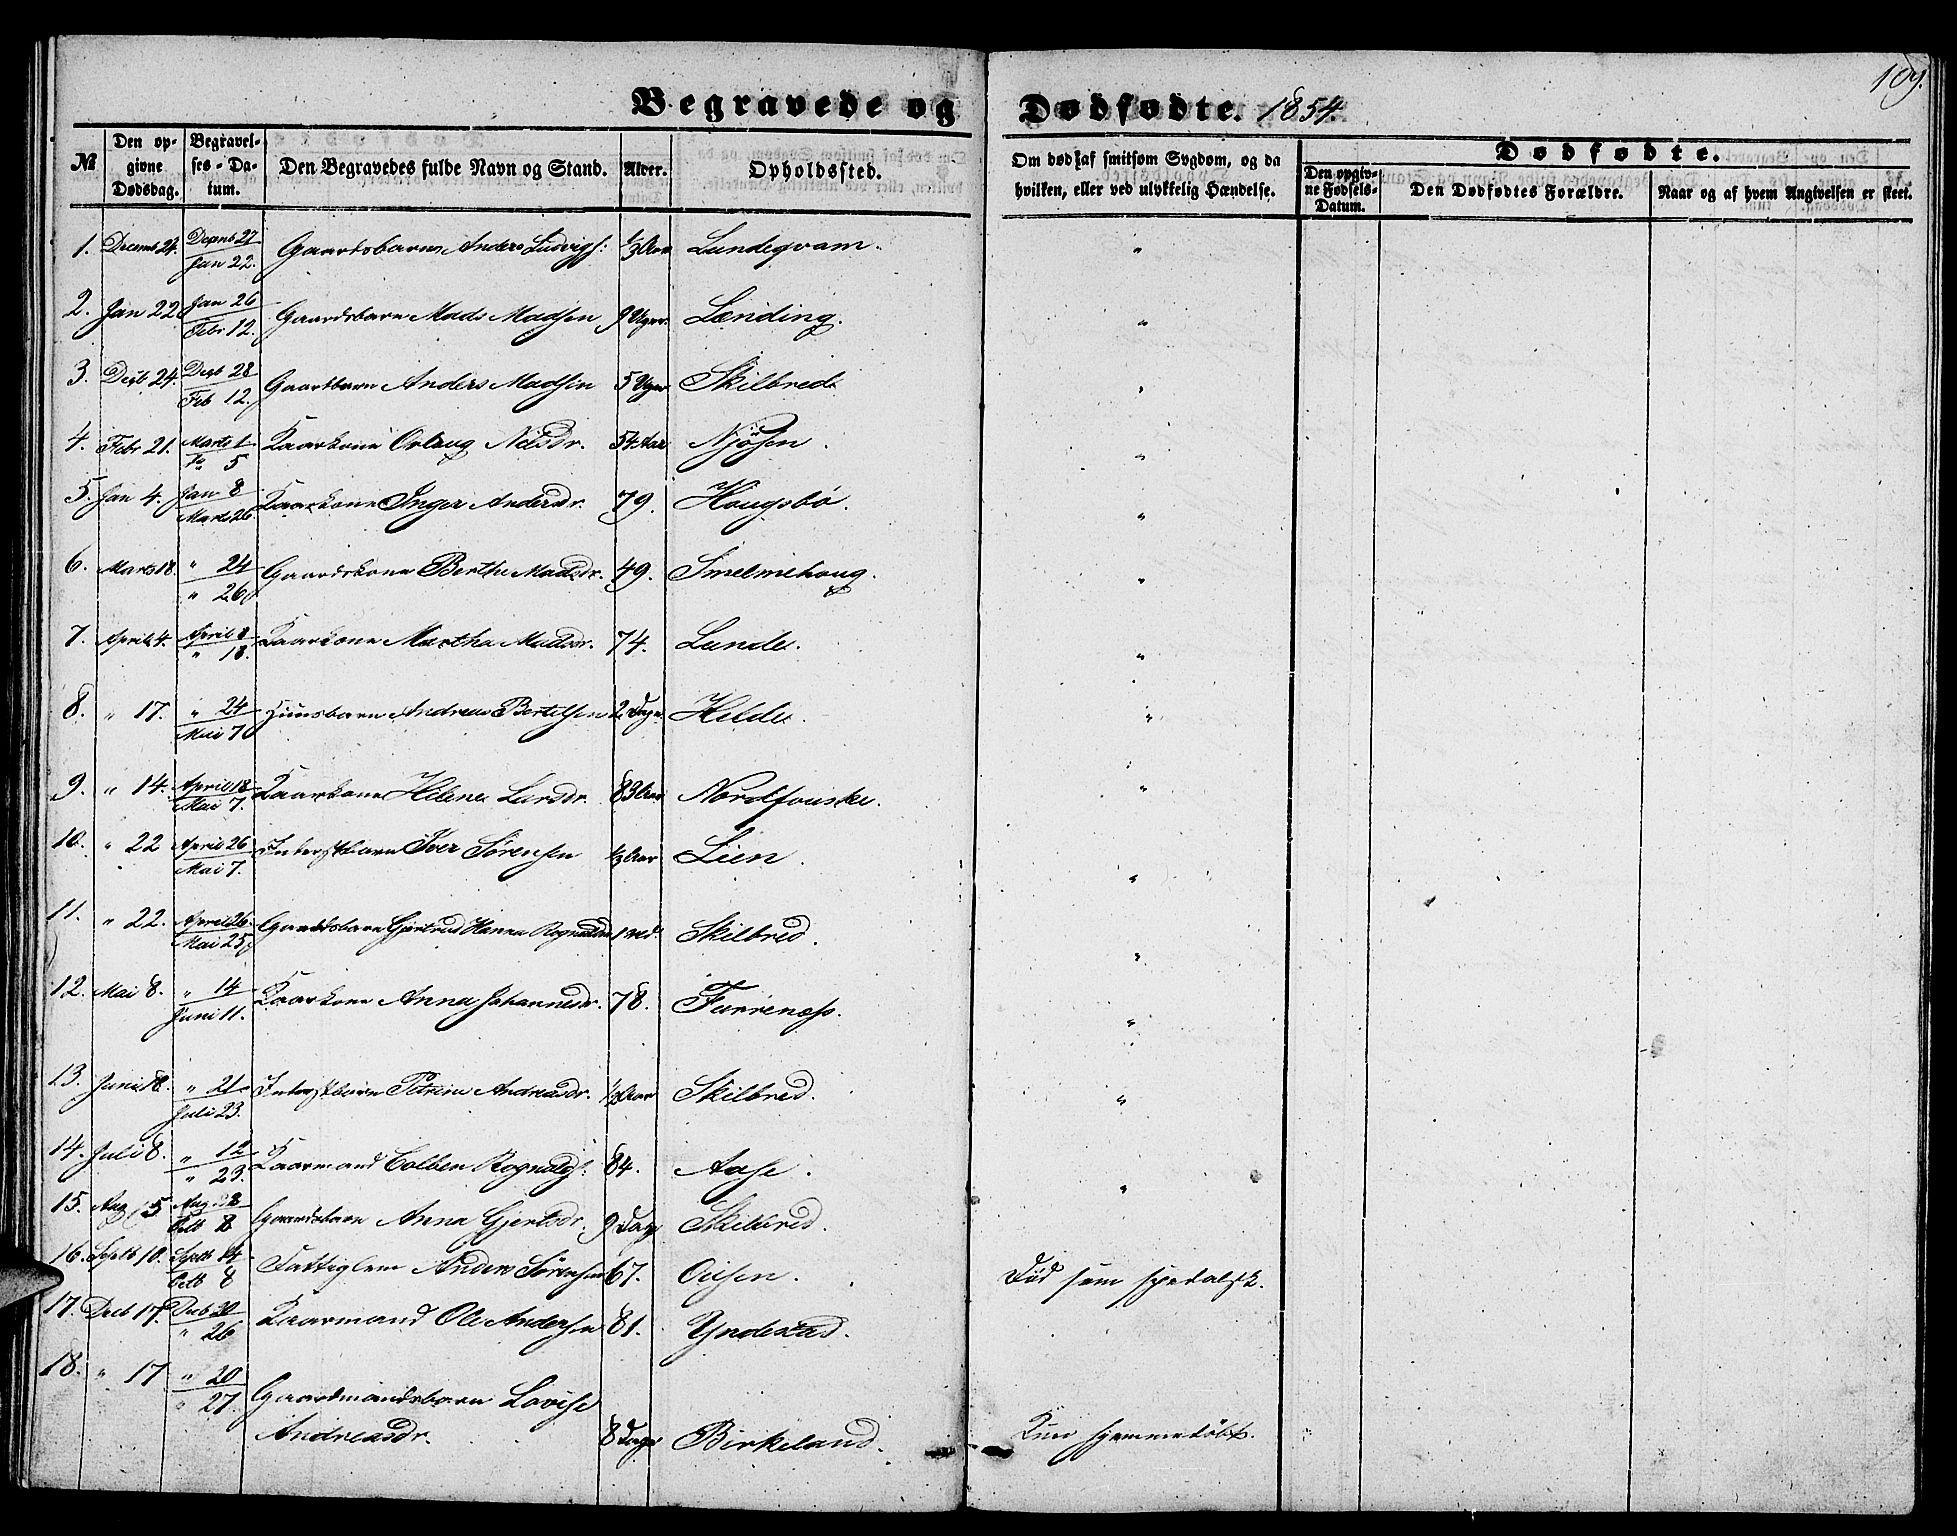 109.
Begravede og Dødfødte. 1854.
№ | Den opgivne Dødsdag. | Begravelses-Datum. | Den Begravedes fulde Navn og Stand. | Alder. | Opholdssted. | Om død af smitsom Sygdom, og da hvilken, eller ved ulykkelig Hændelse. | Dødfødte. | Den opgivne Fødsels-Datum. | Den Dødfødtes Forældre. | Naar og af hvem Angivelsen er skeet.
1. Decemb 24. Decemb 27 / Jan 22. Gaardsbarn Anders Ludvigs: ½ Aar Lundeqvam. "
2. Jan 22 Jan 26 / Febr 12. Gaardsbarn Mads Madsen 9 Uger. Lending. "
3. Decb 24. Decb 28 / Feb 12. Gaardbarn Anders Madsen 5 Uger Skilbred. "
4. Febr 21. Marts 1 / Do 5 Kaarkone Nilsdr. 54 Aar Njøsen. "
5. Jan 4. Jan 8 / Marts 26. Kaarkone Inger Andersdr. 79. Hougsbø. "
6. Marts 18. " 24 / " 26 Gaardskone Berthe Madsdr. 49. Smelmehoug. "
7. April 4. April 8 / " 18. Kaarkone Martha Madsdr. 74. Lunde. "
8. " 17. " 24 / Mai 7 Huusbarn Andreas Bertelsen 2 Dage. Helde. "
9. " 14. April 18 / Mai 7. Kaarkone Helene Larsdr. 83 Aar Nordfonske. "
10. " 22 April 26 / Mai 7. Inderstbarn Iver Sørensen ½ Aar Lien. "
11. " 22. April 26. / Mai 25 Gaardsbarn Gjertrud Hanna Rognaldsdr 1 Md. Skilbred. "
12. Mai 8. " 14 / Juni 11. Kaarkone Anna Johannesdr. 78. Furreness. "
13. Juni 18. " 21 / Juli 23. Inderstbarn Petrine Andreasdr. ½ Aar Skilbred. "
14. Juli 8. " 12 / " 23. Kaarmand Colben Rognalds: 84. Aase. "
15. Aug 15 Aug 18 / Octb 8 Gaardsbarn Anna Gjertsdr. 9 Dage Skilbred.
16. Septb 10. Septb 14 / Octb 8 Fattiglem Anders Sørensen 67. Oilsen. Død som spedalsk.
17. Decb 17. Decb 20 / " 26 Kaarmand Ole Andersen 81. Yndestad.
18. " 17 " 20 / " 27. Gaardmandsbarn Lovise
Andreasdr. 8 Dage Birkeland. Kun hjemmedøbt.